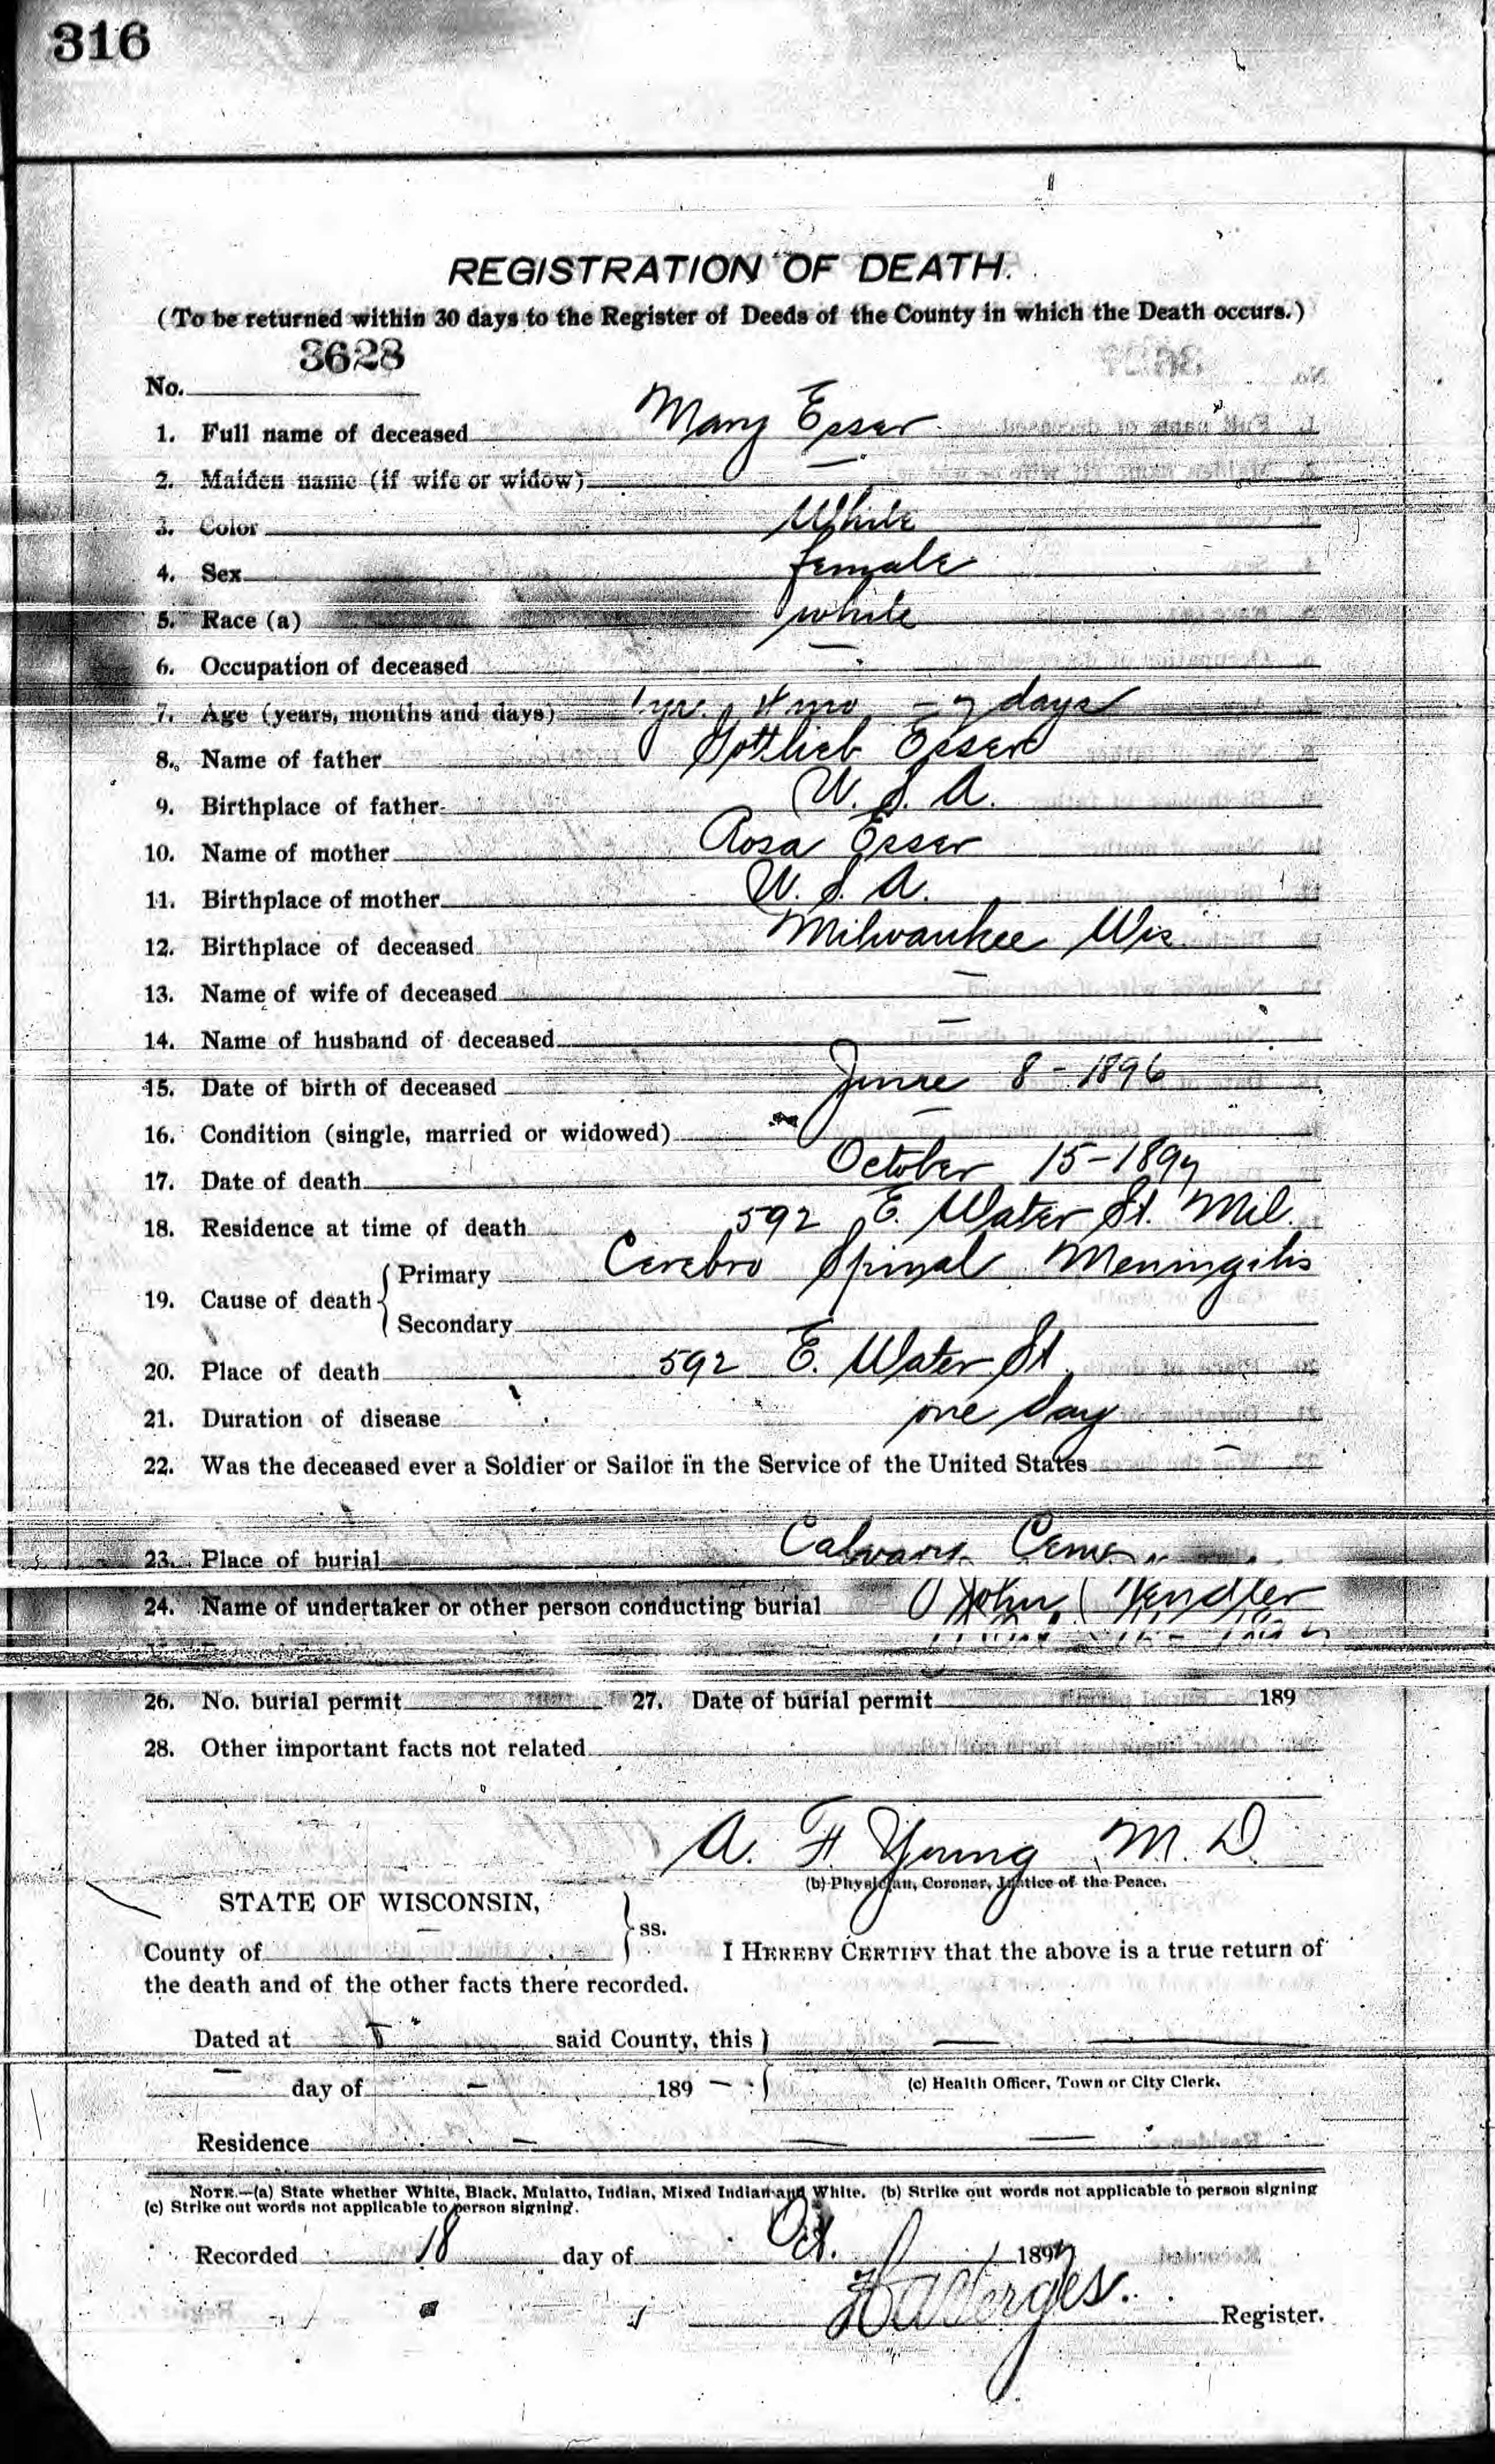 316
REGISTRATION OF DEATH.
(To be returned within 30 days to the Register of Deeds of the County in which the Death occurs.)
No. 3628
1. Full name of deceased Mary Esser
2. Maiden name (if wife or widow) —
3. Color White
4. Sex female
5. Race (a) white
6. Occupation of deceased —
7. Age (years, months and days) 1 yr. 4 mo - 7 days
8. Name of father Gottlieb Esser
9. Birthplace of father U. S. A.
10. Name of mother Rosa Esser
11. Birthplace of mother U. S. A.
12. Birthplace of deceased Milwaukee Wis
13. Name of wife of deceased —
14. Name of husband of deceased —
15. Date of birth of deceased June 8 - 1896
16. Condition (single, married or widowed) —
17. Date of death October 15-1897
18. Residence at time of death 592 E. Water St. Mil.
19. Cause of death { Primary Cerebro Spinal Meningitis
Secondary
20. Place of death 592 E. Water St
21. Duration of disease one day
22. Was the deceased ever a Soldier or Sailor in the Service of the United States —
23. Place of burial Calvary Cem
24. Name of undertaker or other person conducting burial John
26. No. burial permit 27. Date of burial permit 189
28. Other important facts not related
A. F. Young M. D.
(b) Physician, Coroner, Justice of the Peace.
STATE OF WISCONSIN, } ss.
County of — I HEREBY CERTIFY that the above is a true return of
the death and of the other facts there recorded.
Dated at said County, this } — —
— day of — 189 —
(c) Health Officer, Town or City Clerk.
Residence — — —
NOTE.—(a) State whether White, Black, Mulatto, Indian, Mixed Indian and White. (b) Strike out words not applicable to person signing
(c) Strike out words not applicable to person signing.
Recorded 18 day of Oct. 1897
Register.